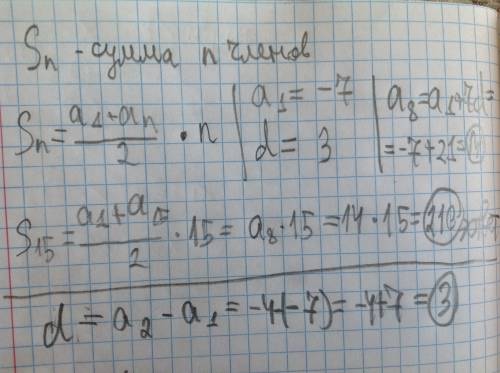 Sn - сумма n членов
Sn = (a1 + an)/2 · n | a1 = -7 | a8 = a1 + 7d =
d = 3 | = -7 + 21 = 14
S15 = (a1 + a15)/2 · 15 = a8 · 15 = 14 · 15 = 210
d = a2 - a1 = -4-(-7) = -4+7 = 3